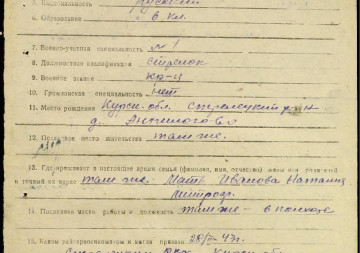 5. Национальность русский
6. Образование 6 кл.
7. Военно-учетная специальность № 1
8. Должностная квалификация стрелок
9. Военное звание кр-ц
10. Гражданская специальность нет
11. Место рождения Курск. обл. Стрелецкий р-н
д.
12. Постоянное место жительства там же.
13. Где проживает в настоящее время семья (фамилия, имя, отчество) жены или родителей
и точный их адрес там же. Мать Иванова Наталия
14. Последнее место работы и должность там же - в колхозе
15. Каким райвоенкоматом и когда призван 43 г.